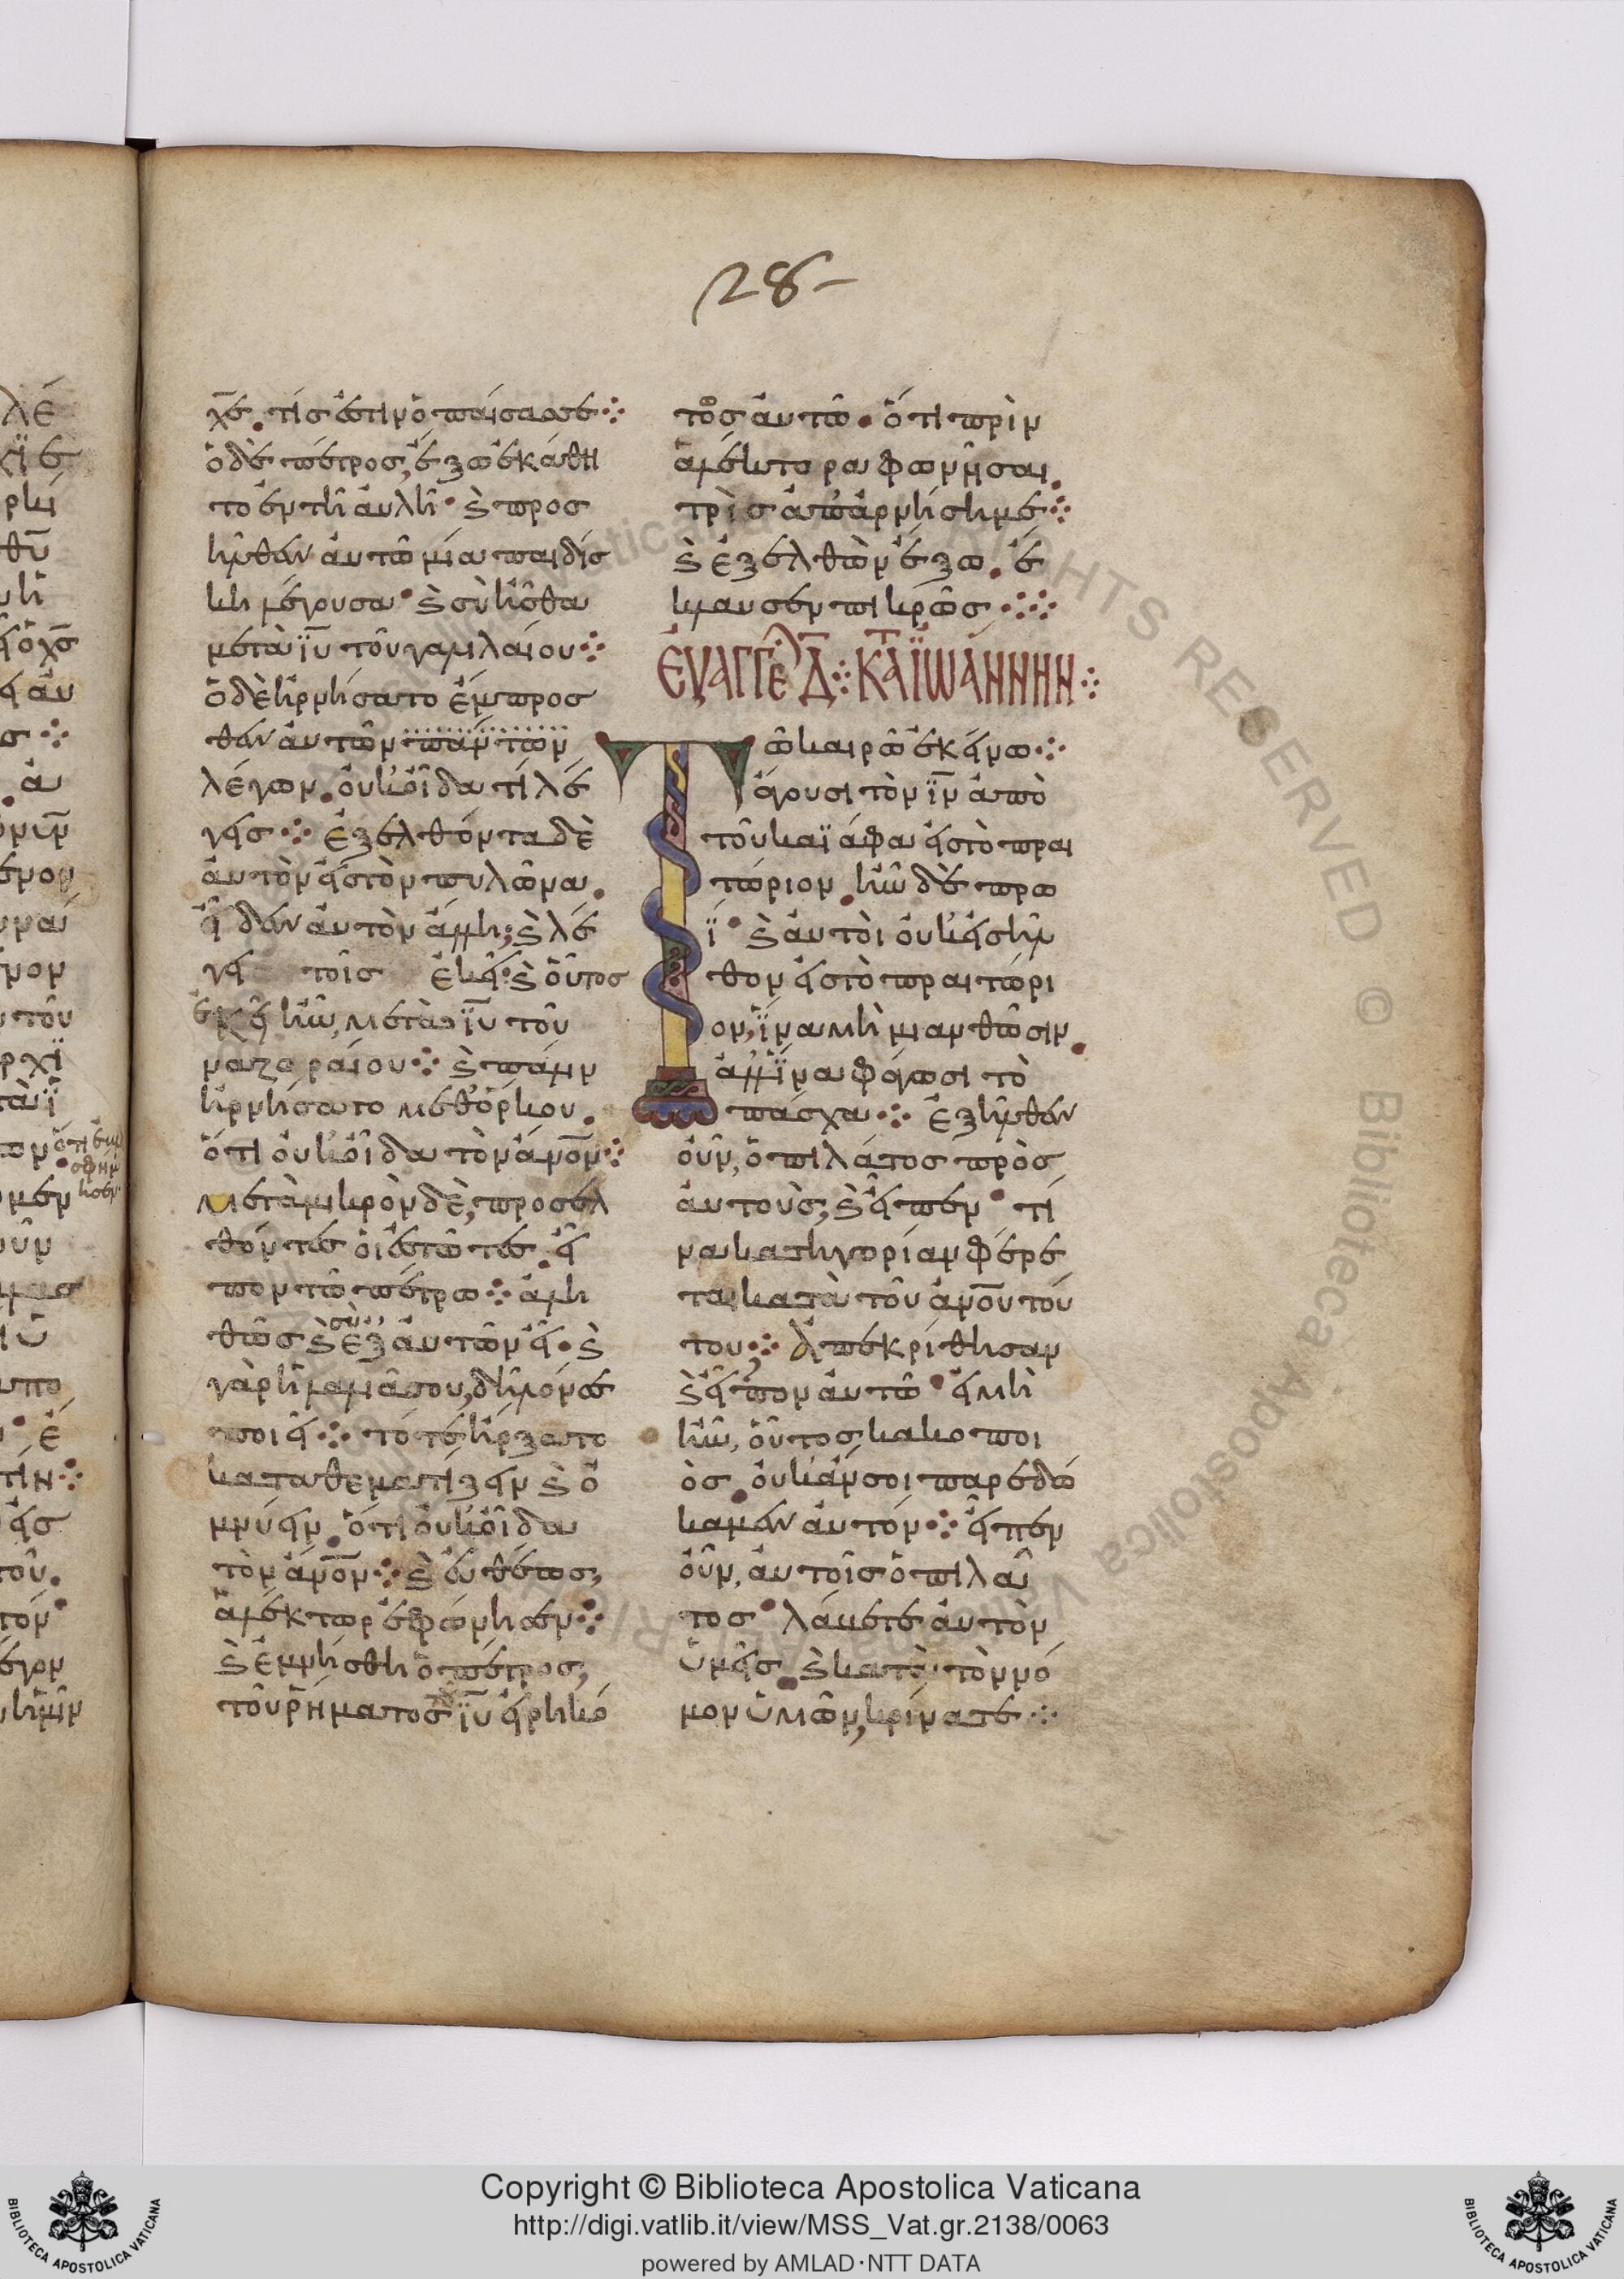 28
χ̅ε. τίς ἐστιν ὁ παίσας σε
ὁ δὲ πέτρος, ἔξω ἐκάθη
το ἐν τῆ αὐλῆ· ϗ προσ
ῆλθεν αὐτῶ μία παιδίσ
κη λέγουσα· ϗ σὺ ἦσθα
μετὰ ι̅υ̅ τοῦ γαλιλαίου
ὁ δὲ ἠρνήσατο ἔμπροσ
θεν αὐτῶν πάντων
λέγων. οὐκ οἶδα τί λέ
γεις ἐξελθόντα δὲ
αὐτὸν εἰς τὸν πυλῶνα.
εἶδεν αὐτὸν ἄλλη, ϗ λέ
γει τοῖς ἐκεῖ· ϗ οὗτος
ἐκεῖ ἦν, μετὰ ι̅υ̅ τοῦ
ναζοραίου ϗ πάλιν
ἠρνήσατο μεθ' ὅρκου.
ὅτι οὐκ οἶδα τὸν α̅ν̅ο̅ν̅
μετὰ μικρὸν δὲ, προσελ
θόντες οἱ ἑστῶτες. εἶ
πον τῶ πέτρω ἀλη
θῶς ϗ σὺ ἐξ αὐτῶν εἶ· ϗ
γὰρ ἡ λαλιά σου, δῆλόν σε
ποιεῖ τότε ἤρξατο
καταθεματίζειν ϗ ὀ
μνύειν. ὅτι οὐκ οἶδα
τὸν α̅ν̅ο̅ν̅ ϗ εὐθέως,
ἀλέκτωρ ἐφώνησεν
ϗ ἐμνήσθη ὁ πέτρος,
τοῦ ῥήματος ι̅υ̅ εἰρηκό
τος αὐτῶ. ὅτι πρὶν
ἀλέκτορα φωνῆσαι.
τρὶς ἀπαρνήση με
ϗ ἐξελθὼν ἔξω. ἔ
κλαυσεν πικρῶς.
ΕΥΑΓΓΕΛ Δ ΚΑΤ ΙΩΑΝΝΗΝ
Τῶ καιρῶ ἐκείνω
ἄγουσι τὸν ι̅ν̅ ἀπὸ
τοῦ καϊάφα εἰς τὸ πραι
τώριον. ἦν δὲ πρω
ΐ· ϗ αὐτοὶ οὐκ εἰσῆλ
θον εἰς τὸ πραιτώρι
ον, ἵνα μὴ μιανθῶσιν.
ἀλλ' ἵνα φάγωσι τὸ
πάσχα ἐξῆλθεν
οὖν, ὁ πιλάτος πρὸς
αὐτοὺς, ϗ εἶπεν· τί
να κατηγορίαν φέρε
τε κατὰ τοῦ α̅ν̅ο̅υ̅ τού
του ἀπεκρίθησαν
ϗ εἶπον αὐτῶ· εἰ μὴ
ἦν, οὗτος κακοποι
ὸς. οὐκ ἄν σοι παρεδώ
καμεν αὐτόν εἶπεν
οὖν, αὐτοῖς ὁ πιλᾶ
τος· λάβετε αὐτὸν
ὑμεῖς. ϗ κατὰ τὸν νό
μον ὑμῶν, κρίνατε
Copyright © Biblioteca Apostolica Vaticana
http://digi.vatlib.it/view/MSS_Vat.gr.2138/0063
powered by AMLAD·NTT DATA
BIBLIOTECA APOSTOLICA VATICANA
BIBLIOTECA APOSTOLICA VATICANA